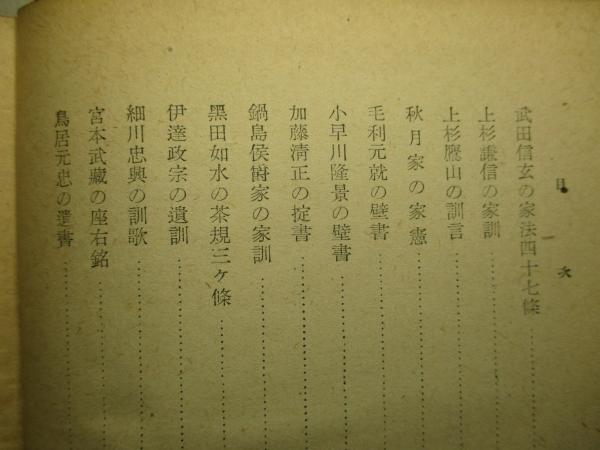 目次
武田信玄の家法四十七條
上杉謙信の家訓
上杉鷹山の訓言
秋月家の家憲
毛利元就の壁書
小早川隆景の壁書
加藤淸正の掟書
鍋島侯爵家の家訓
黑田如水の茶規三ヶ條
伊達政宗の遺訓
細川忠興の訓歌
宮本武藏の座右銘
鳥居元忠の遺書